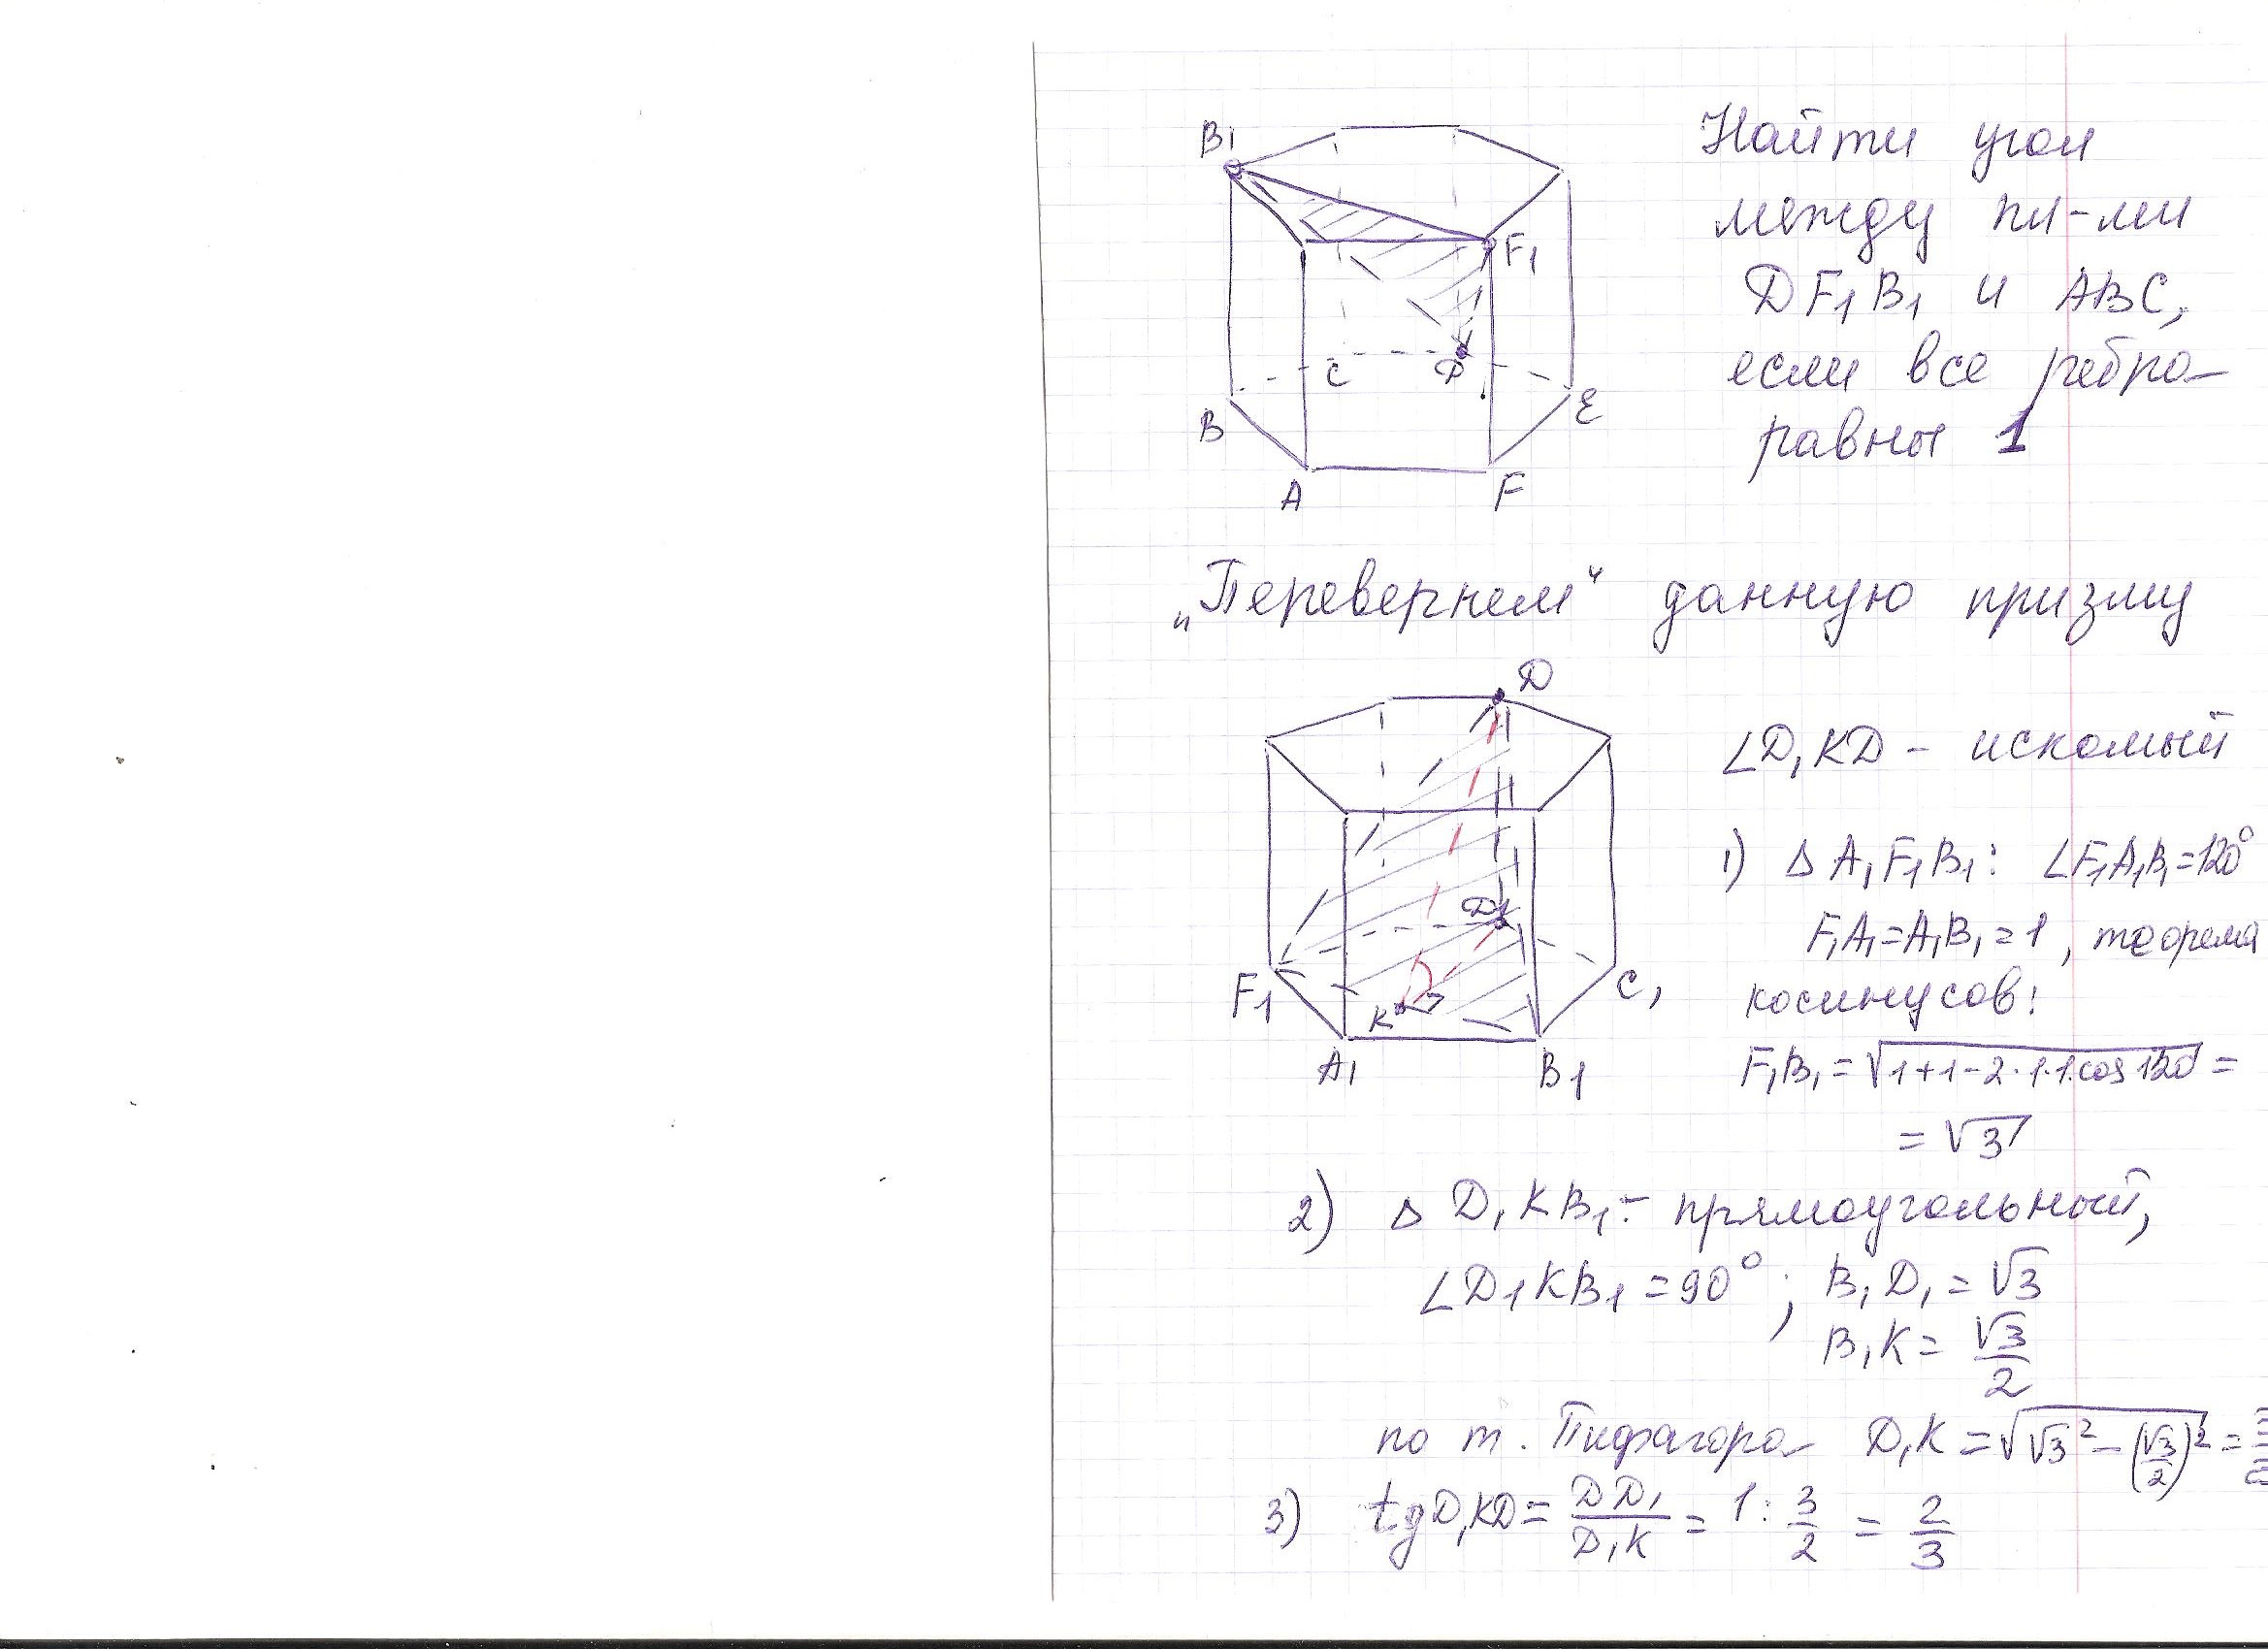 B1
F1
C
D
B
E
A
F
Найти угол
между пл-ми
DF1B1 и ABC,
если все ребра
равны 1
„Перевернем“ данную призму
D
D1
F1
K
C1
A1
B1
∠D1KD – искомый
1) Δ A1F1B1: ∠F1A1B1=120°
F1A1=A1B1=1, теорема
косинусов:
F1B1=√(1+1-2·1·1·cos120) =
= √3
2) Δ D1KB1 – прямоугольный,
∠D1KB1=90°; B1D1=√3
B1K=√3/2
по т. Пифагора D1K=√(√3²-(√3/2)²)=
3) tgD1KD=DD1/D1K=1:3/2=2/3